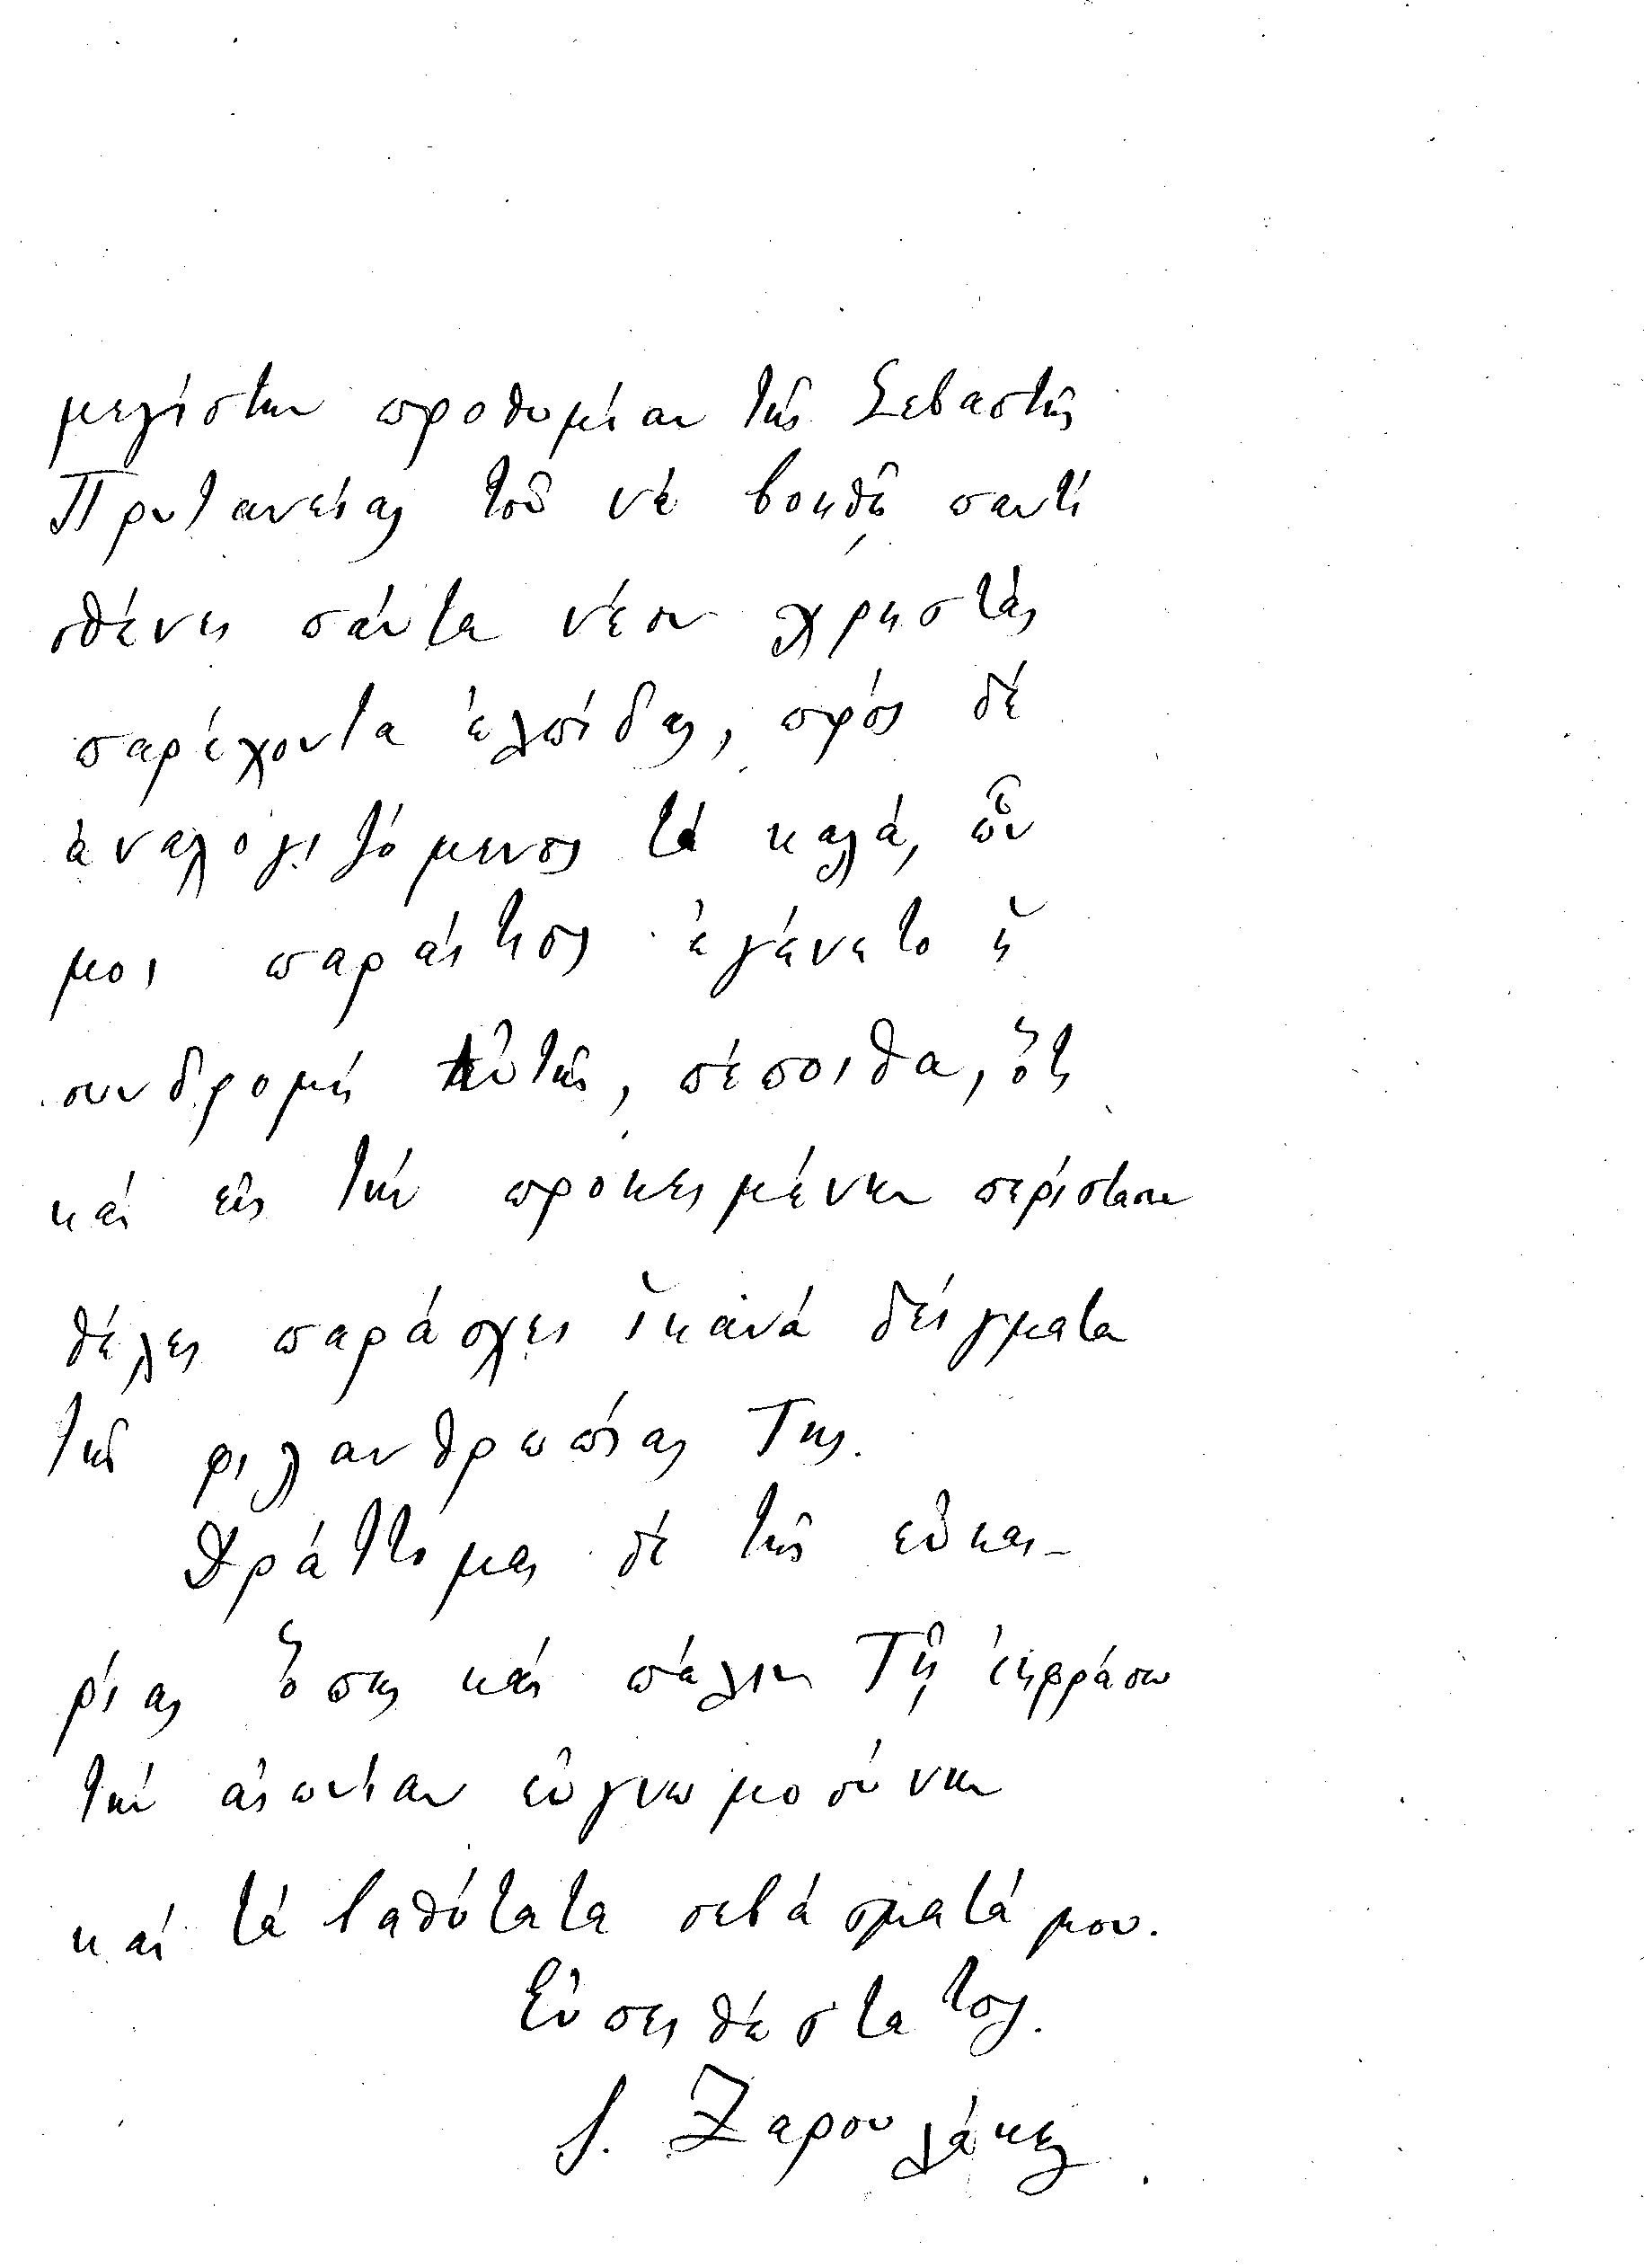 μεγίστην προθυμίαν τῆς Σεβαστῆς
Πρυτανείας τοῦ νὰ βοηθῇ παντὶ
σθένει πάντα νέον χρηστὰς
παρέχοντα ἐλπίδας, πρὸς δὲ
ἀναλογιζόμενος τὰ καλά, ὧν
μοι παραίτιος ἐγένετο ἡ
συνδρομὴ Αὐτῆς, πέποιθα, ὅτι
καὶ εἰς τὴν προκειμένην περίστασιν
θέλει παράσχει ἱκανὰ δείγματα
τῆς φιλανθρωπίας Της.
Δράττομαι δὲ τῆς εὐκαι-
ρίας ὅπως καὶ πάλιν Τῇ ἐκφράσω
τὴν αἰωνίαν εὐγνωμοσύνην
καὶ τὰ βαθύτατα σεβάσματά μου.
Εὐπειθέστατος.
Ι. Ζαρουλάκης